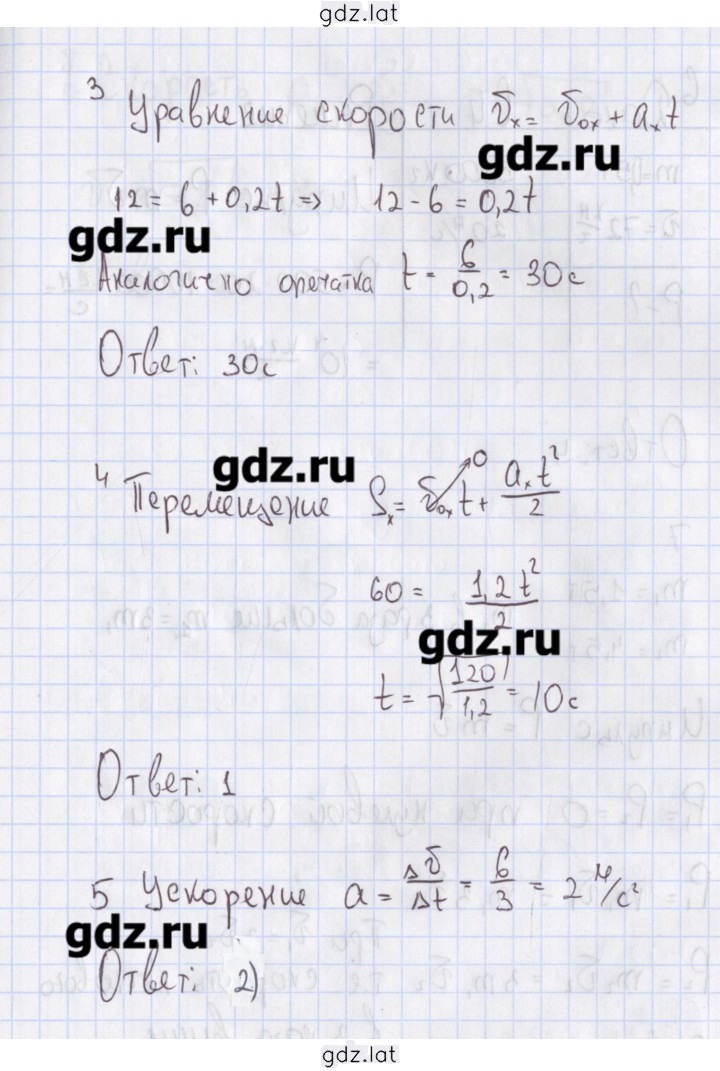 gdz.lat
3 Уравнение скорости υₓ = υ₀ₓ + aₓt
gdz.ru
12 = 6 + 0,2t => 12 - 6 = 0,2t
gdz.ru
Аналогично опечатка t = 6/0,2 = 30с
Ответ: 30с
gdz.ru
4 Перемещение Sₓ = υ₀ₓt + aₓt²/2
0
60 = 1,2t²/2
gdz.ru
t = √(120/1,2) = 10с
Ответ: 1
5 Ускорение a = Δυ/Δt = 6/3 = 2 м/с²
gdz.ru
Ответ: 2)
gdz.lat